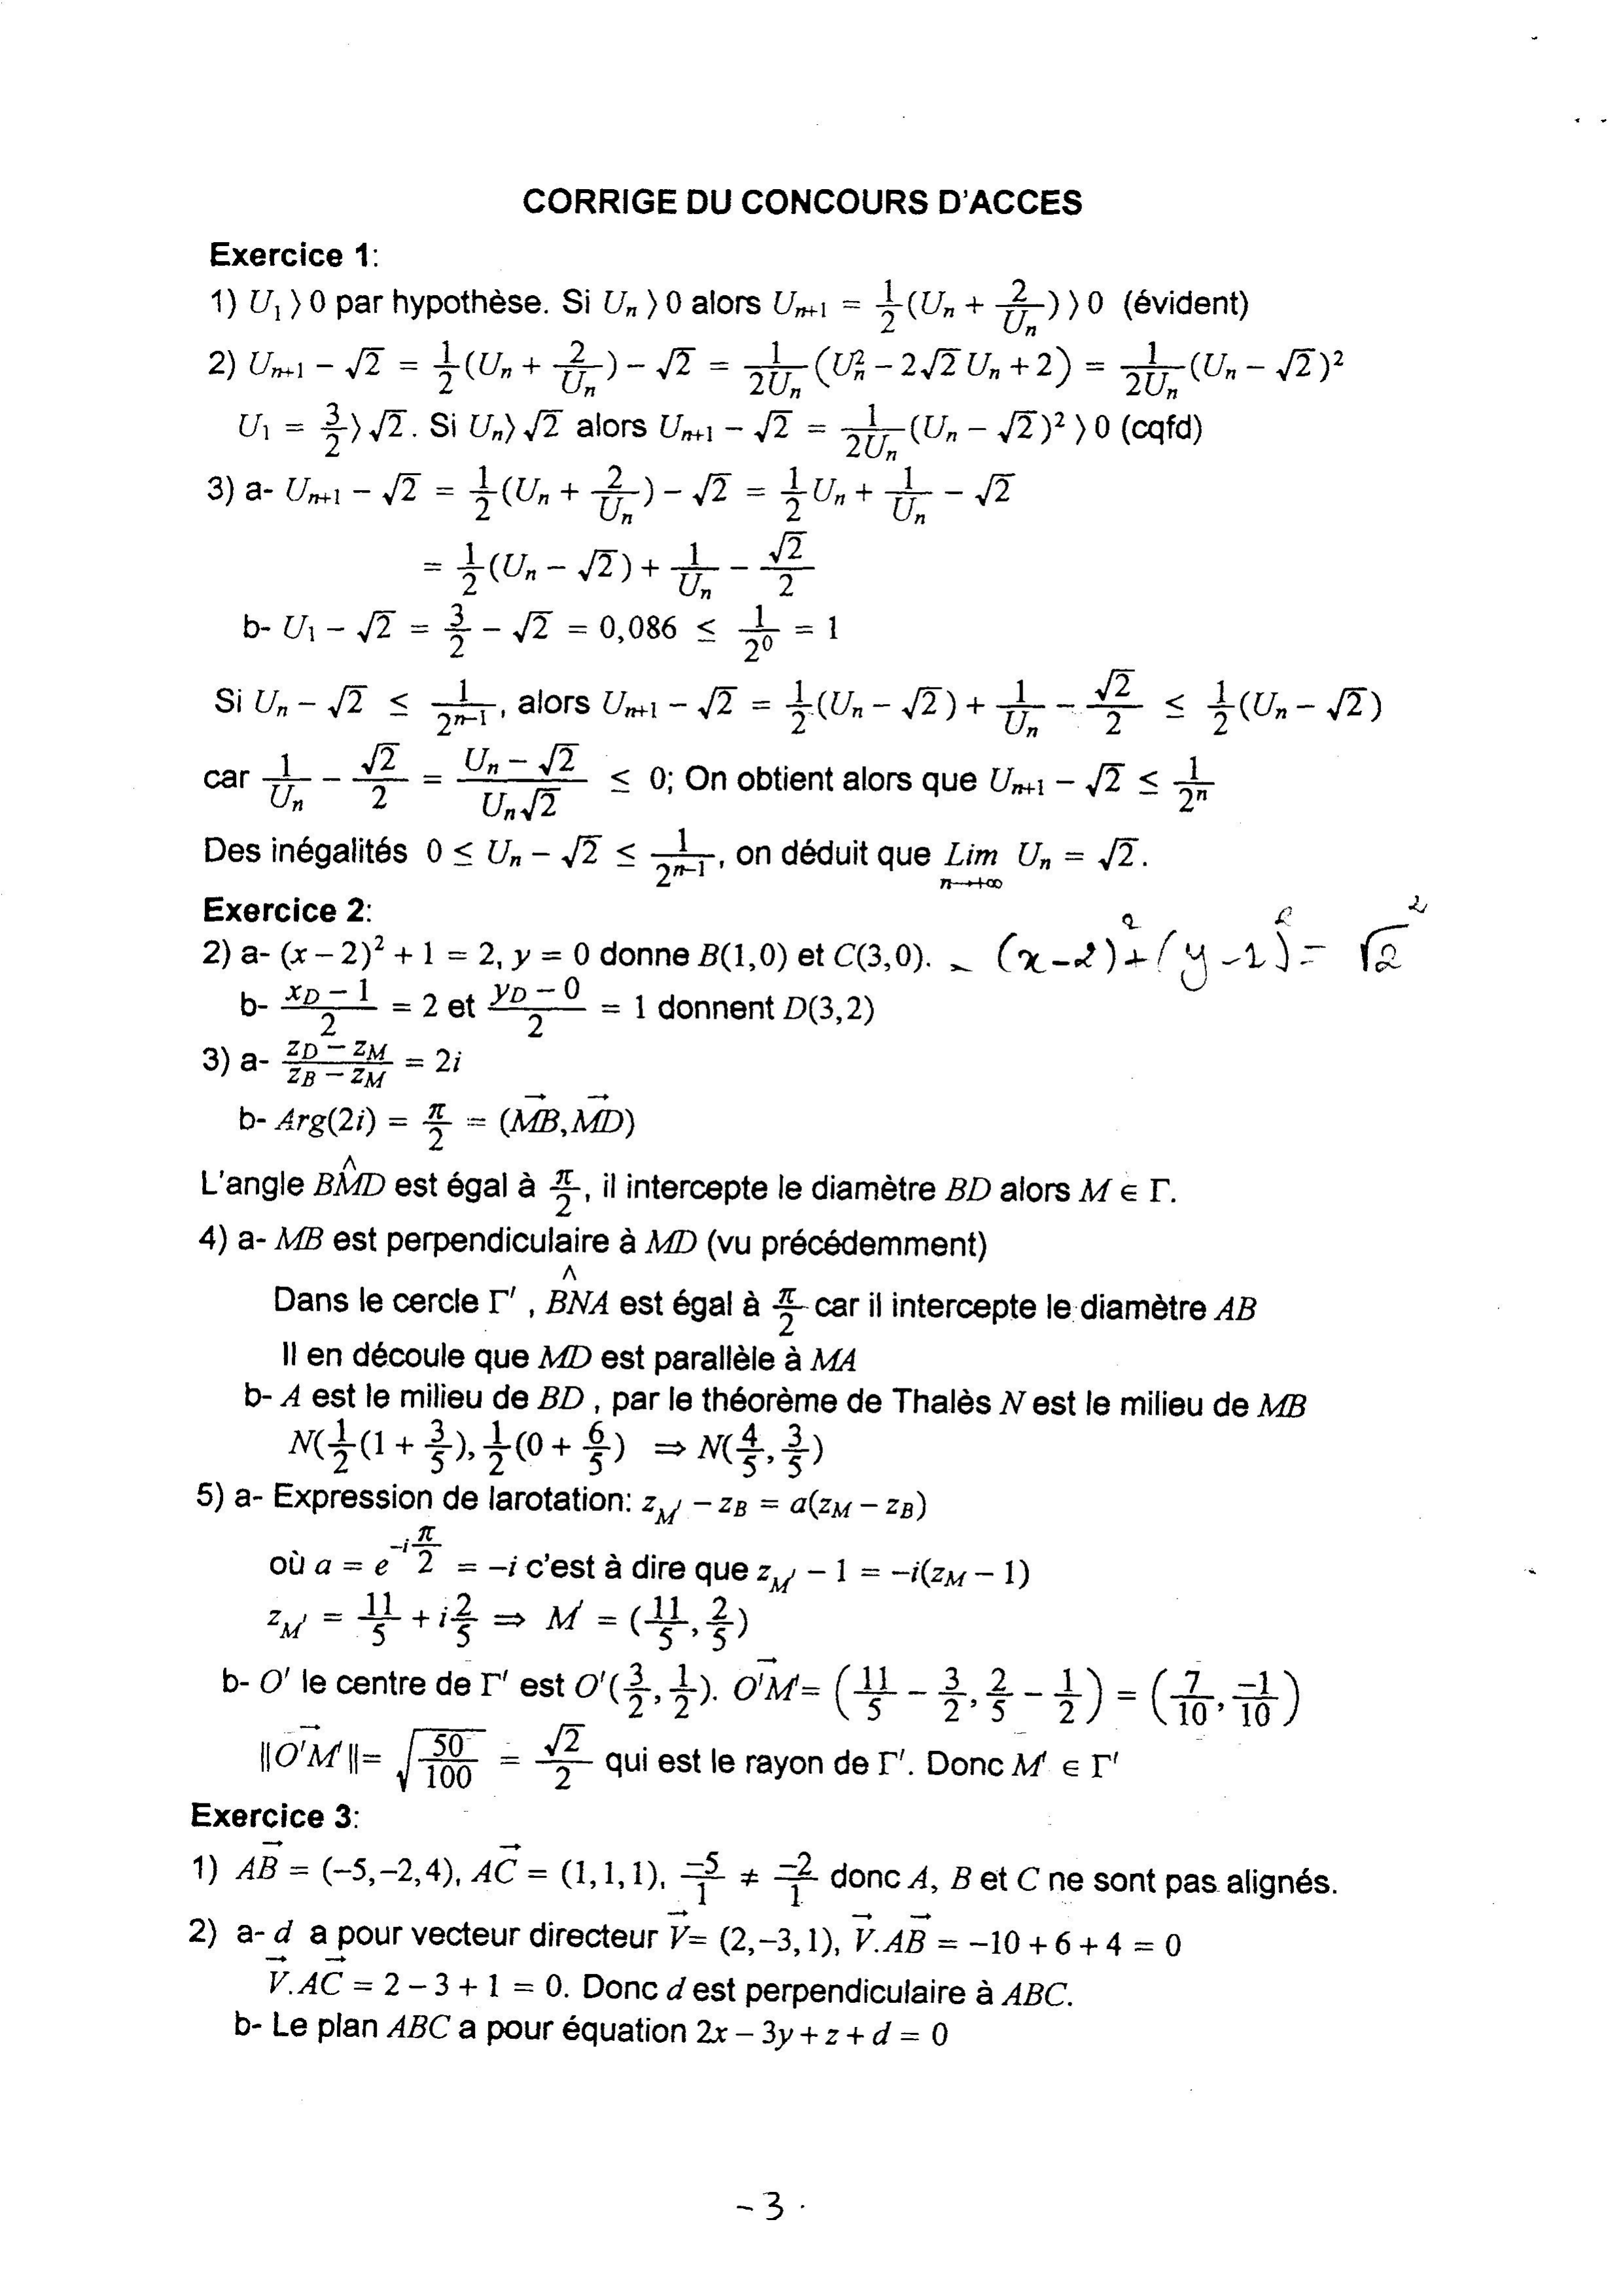 CORRIGE DU CONCOURS D'ACCES
Exercice 1:
1) U₁ ⟩ 0 par hypothèse. Si Uₙ ⟩ 0 alors Uₙ₊₁ = 1/2(Uₙ + 2/Uₙ) ⟩ 0 (évident)
2) Uₙ₊₁ − √2 = 1/2(Uₙ + 2/Uₙ) − √2 = 1/(2Uₙ)(Uₙ² − 2√2 Uₙ + 2) = 1/(2Uₙ)(Uₙ − √2)²
U₁ = 3/2 ⟩ √2. Si Uₙ ⟩ √2 alors Uₙ₊₁ − √2 = 1/(2Uₙ)(Uₙ − √2)² ⟩ 0 (cqfd)
3) a- Uₙ₊₁ − √2 = 1/2(Uₙ + 2/Uₙ) − √2 = 1/2 Uₙ + 1/Uₙ − √2
= 1/2(Uₙ − √2) + 1/Uₙ − √2/2
b- U₁ − √2 = 3/2 − √2 = 0,086 ≤ 1/2⁰ = 1
Si Uₙ − √2 ≤ 1/2ⁿ⁻¹, alors Uₙ₊₁ − √2 = 1/2(Uₙ − √2) + 1/Uₙ − √2/2 ≤ 1/2(Uₙ − √2)
car 1/Uₙ − √2/2 = (Uₙ − √2)/(Uₙ√2) ≤ 0; On obtient alors que Uₙ₊₁ − √2 ≤ 1/2ⁿ
Des inégalités 0 ≤ Uₙ − √2 ≤ 1/2ⁿ⁻¹, on déduit que Lim Uₙ = √2.
n→+∞
Exercice 2:
2) a- (x − 2)² + 1 = 2, y = 0 donne B(1,0) et C(3,0). - (x-2)²+(y-1)²= √2²
b- (x_D − 1)/2 = 2 et (y_D − 0)/2 = 1 donnent D(3,2)
3) a- (z_D − z_M)/(z_B − z_M) = 2i
b- Arg(2i) = π/2 = (MB⃗,MD⃗)
L'angle BM̂D est égal à π/2, il intercepte le diamètre BD alors M ∈ Γ.
4) a- MB est perpendiculaire à MD (vu précédemment)
Dans le cercle Γ' , BN̂A est égal à π/2 car il intercepte le diamètre AB
Il en découle que MD est parallèle à MA
b- A est le milieu de BD , par le théorème de Thalès N est le milieu de MB
N(1/2(1 + 3/5), 1/2(0 + 6/5) ⇒ N(4/5, 3/5)
5) a- Expression de larotation: z_M' − z_B = a(z_M − z_B)
où a = e^(−iπ/2) = −i c'est à dire que z_M' − 1 = −i(z_M − 1)
z_M' = 11/5 + i2/5 ⇒ M' = (11/5, 2/5)
b- O' le centre de Γ' est O'(3/2, 1/2). O'M'⃗ = (11/5 − 3/2, 2/5 − 1/2) = (7/10, −1/10)
||O'M'⃗|| = √(50/100) = √2/2 qui est le rayon de Γ'. Donc M' ∈ Γ'
Exercice 3:
1) AB⃗ = (−5,−2,4), AC⃗ = (1,1,1), −5/1 ≠ −2/1 donc A, B et C ne sont pas alignés.
2) a- d a pour vecteur directeur V⃗= (2,−3,1), V⃗.AB⃗ = −10 + 6 + 4 = 0
V⃗.AC⃗ = 2 − 3 + 1 = 0. Donc d est perpendiculaire à ABC.
b- Le plan ABC a pour équation 2x − 3y + z + d = 0
-3.